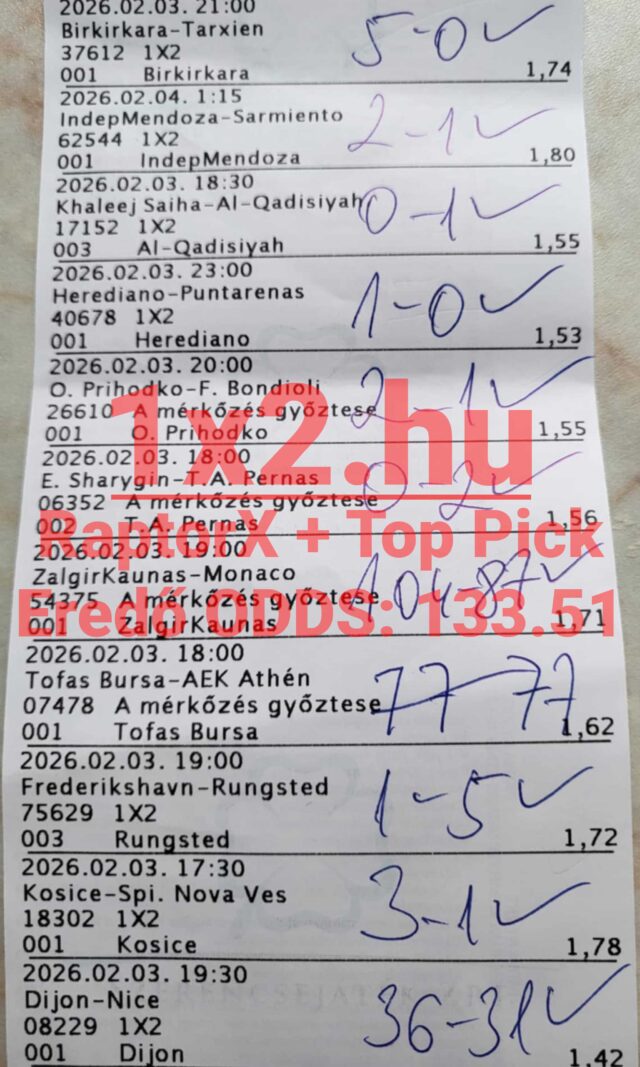 2026.02.03. 21:00
Birkirkara-Tarxien
37612 1X2
5-0
001 Birkirkara 1,74
2026.02.04. 1:15
IndepMendoza-Sarmiento
62544 1X2
2-1
001 IndepMendoza 1,80
2026.02.03. 18:30
Khaleej Saiha-Al-Qadisiyah
17152 1X2
0-1
003 Al-Qadisiyah 1,55
2026.02.03. 23:00
Herediano-Puntarenas
40678 1X2
1-0
001 Herediano 1,53
2026.02.03. 20:00
O. Prihodko-F. Bondioli
26610 A mérkőzés győztese
2-1
001 O. Prihodko 1,55
1x2.hu
2026.02.03. 18:00
E. Sharygin-T.A. Pernas
06352 A mérkőzés győztese
0-2
002 T.A. Pernas 1,56
RaptorX + Top Pick
2026.02.03. 19:00
ZalgirKaunas-Monaco
54375 A mérkőzés győztese
104-87
001 ZalgirKaunas 1,71
Eredő ODDS: 133.51
2026.02.03. 18:00
Tofas Bursa-AEK Athén
07478 A mérkőzés győztese
77-77
001 Tofas Bursa 1,62
2026.02.03. 19:00
Frederikshavn-Rungsted
75629 1X2
1-5
003 Rungsted 1,72
2026.02.03. 17:30
Kosice-Spi. Nova Ves
18302 1X2
3-1
001 Kosice 1,78
2026.02.03. 19:30
Dijon-Nice
08229 1X2
36-31
001 Dijon 1,42